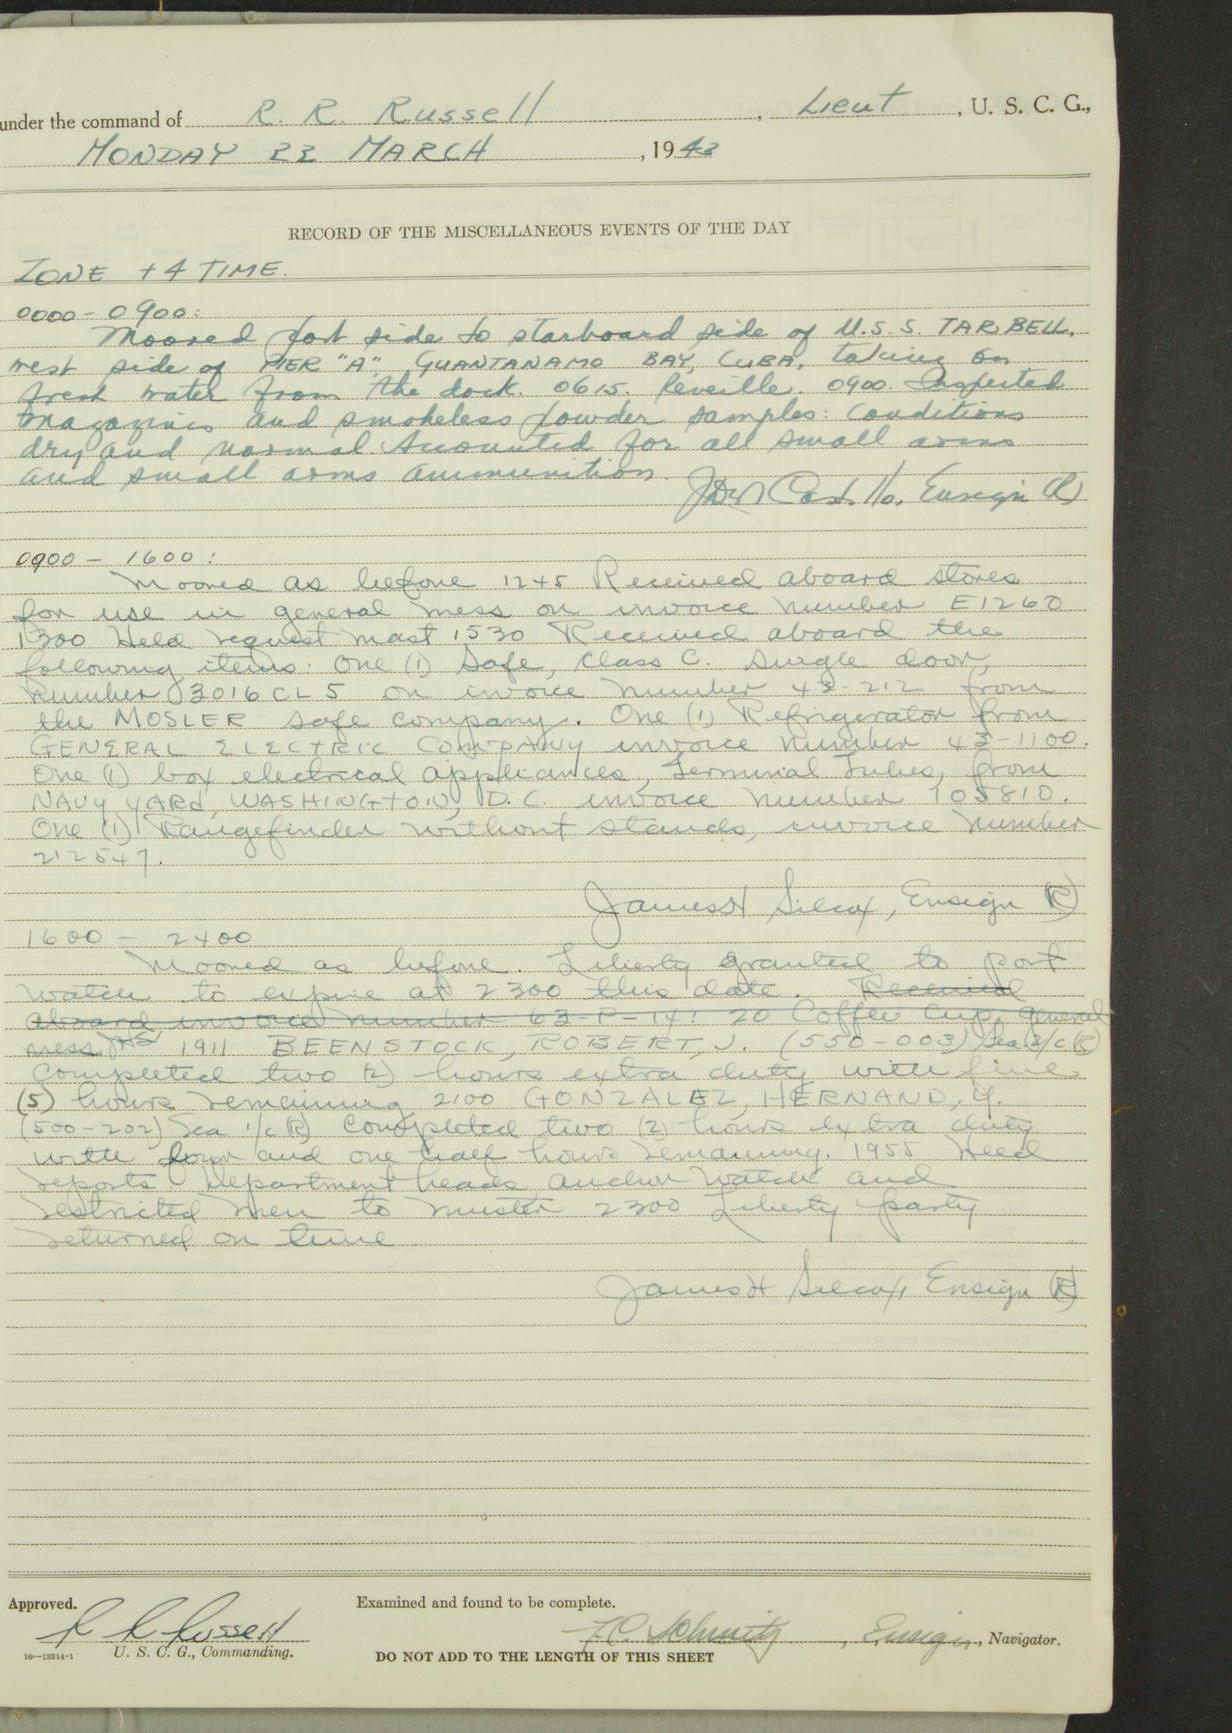 under the command of R. R. Russell, Lieut, U. S. C. G.,
MONDAY 22 MARCH, 1943
RECORD OF THE MISCELLANEOUS EVENTS OF THE DAY
ZONE +4 TIME.
0000-0900:
Moored port side to starboard side of U.S.S. TARBELL,
west side of PIER "A", GUANTANAMO BAY, CUBA, taking on
fresh water from the dock. 0615. Reveille. 0900. Inspected
magazines and smokeless powder samples: Conditions
dry and normal. Accounted for all small arms
and small arms ammunition.
Castillo, Ensign (R)
0900 - 1600:
Moored as before 1245 Received aboard stores
for use in general mess on invoice number E1260
1300 Held request mast 1530 Received aboard the
following items: One (1) Safe, Class C. single door,
number 3016 CL 5 on invoice number 43-212 from
the MOSLER safe company. One (1) Refrigerator from
GENERAL ELECTRIC COMPANY invoice number 43-1100.
One (1) box electrical appliances, Terminal Tubes, from
NAVY YARD, WASHINGTON, D.C. invoice number 105810.
One (1) Rangefinder without stands, invoice number
212547.
James H Silcox, Ensign (R)
1600 - 2400
Moored as before. Liberty granted to port
watch to expire at 2300 this date. Received
aboard invoice number 63-P-14: 20 Coffee Cup, general
mess JHS 1911 BEENSTOCK, ROBERT, J. (550-003) Sea 2/c (R)
completed two (2) hours extra duty with five
(5) hours remaining 2100 GONZALEZ, HERNAND, Y.
(500-202) Sea 1/c (R) completed two (2) hours extra duty
with four and one half hours remaining. 1955 Heed
reports. Department heads anchor watch and
restricted men to muster 2300 Liberty party
returned on time
James H Silcox, Ensign (R)
Approved.
Examined and found to be complete.
R R Russell
F.C. Schmitz, Ensign, Navigator.
16—13314-1
U. S. C. G., Commanding.
DO NOT ADD TO THE LENGTH OF THIS SHEET